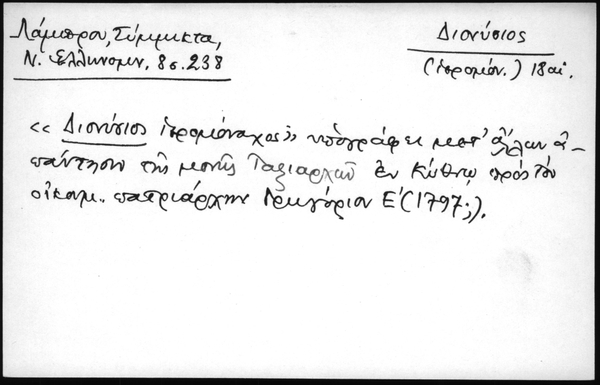 Λάμπρου, Σύμμικτα,
Ν. Ἑλληνομν. 8σ. 238
Διονύσιος
(ἱερομόν.) 18 αἰ.
«Διονύσιος ἱερομόναχος» ὑπογράφει μετ' ἄλλων ἀ-
πάντησιν τῆς μονῆς Ταξιαρχῶν ἐν Κύθνῳ πρὸς τὸν
οἰκουμ. πατριάρχην Γρηγόριον Ε' (1797;).